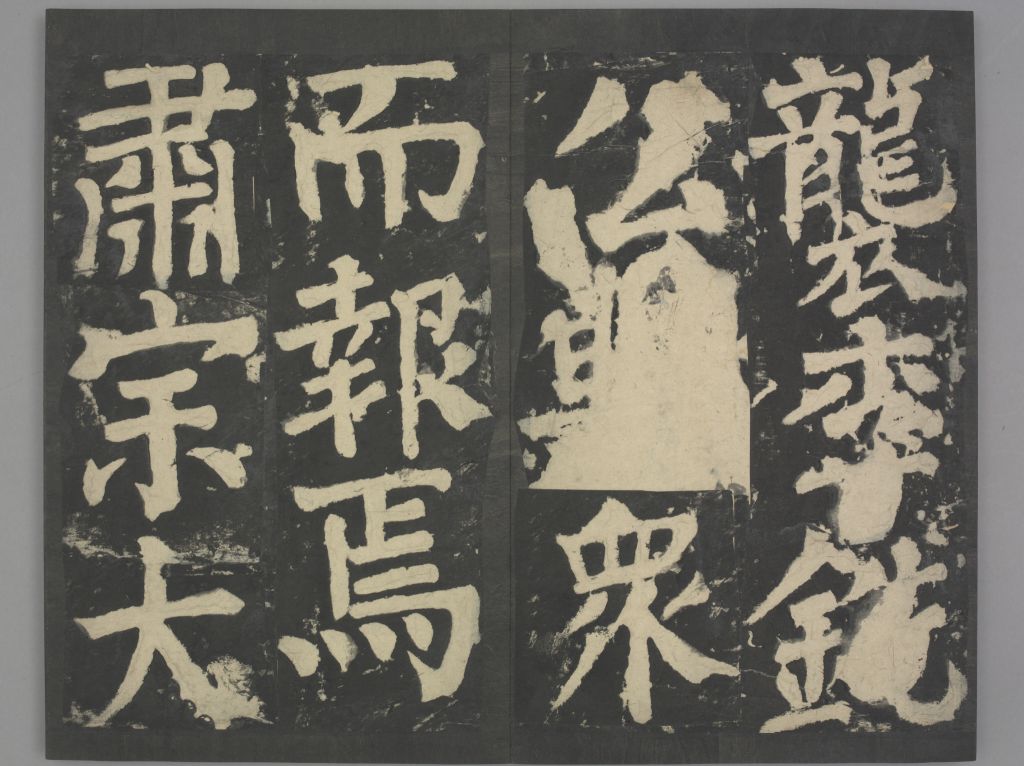 襲李銑
公衆
而報焉
肅宗大